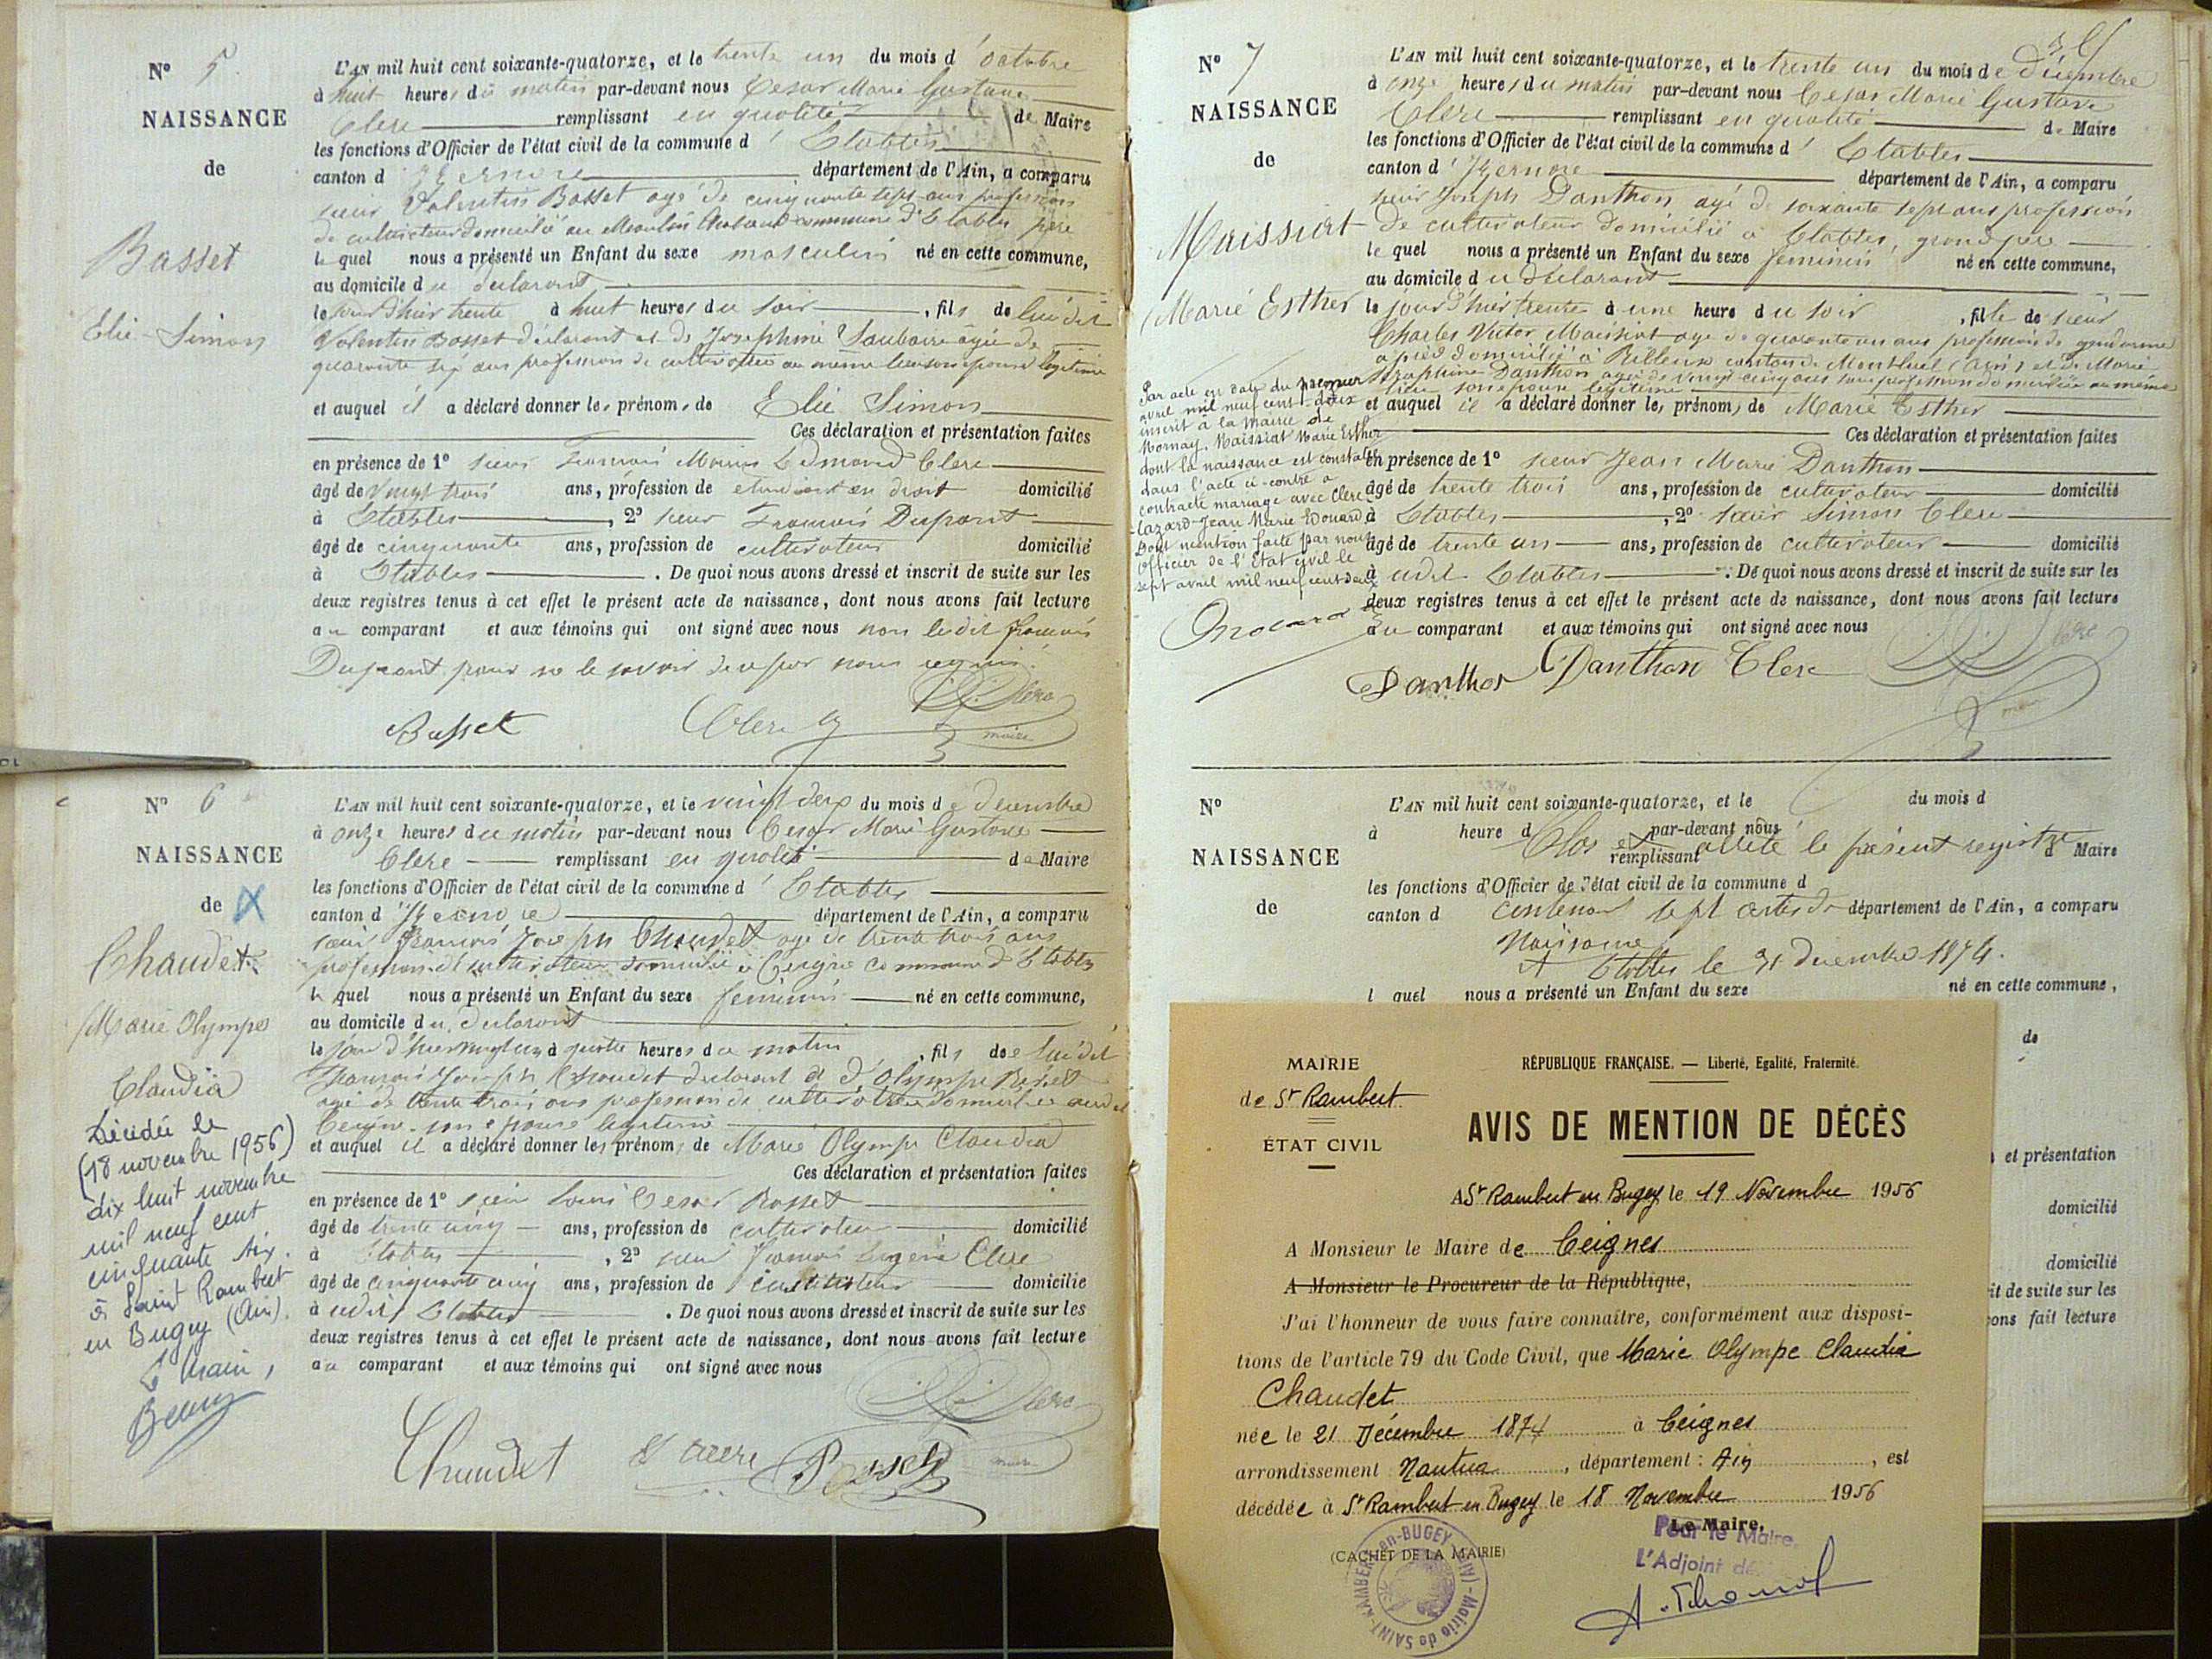 N° 5
NAISSANCE
de
Basset
Elie-Simon
L'AN mil huit cent soixante-quatorze, et le trente un du mois d'octobre
à huit heures du matin par-devant nous Cesar Marie Gustave
Clerc remplissant en qualité de Maire
les fonctions d'Officier de l'état civil de la commune d'Etables
canton d'Izernore département de l'Ain, a comparu
sieur Valentin Basset agé de cinquante sept ans profession
de cultivateur domicilié au Moulin commune d'Etables père
le quel nous a présenté un Enfant du sexe masculin né en cette commune,
au domicile du déclarant
le jour d'hier trente à huit heures du soir, fils de lui dit
Valentin Basset déclarant et de Josephine agée de
quarante six ans profession de cultivatrice au même lieu son épouse légitime
et auquel il a déclaré donner les prénoms de Elie Simon
Ces déclaration et présentation faites
en présence de 1° sieur François Edmond Clerc
âgé de vingt trois ans, profession de etudiant en droit domicilié
à Etables, 2° sieur François Dupont
âgé de cinquante ans, profession de cultivateur domicilié
à Etables. De quoi nous avons dressé et inscrit de suite sur les
deux registres tenus à cet effet le présent acte de naissance, dont nous avons fait lecture
au comparant et aux témoins qui ont signé avec nous non ledit François
Dupont pour ne le savoir de ce par nous requis.
Basset Clerc Clerc
maire
N° 6
NAISSANCE
de X
Chaudet
Marie Olympe
Claudia
Décédée le
(18 novembre 1956)
dix huit novembre
mil neuf cent
cinquante six
à Saint Rambert
en Bugey (Ain).
Le Maire,
L'AN mil huit cent soixante-quatorze, et le vingt deux du mois de decembre
à onze heures du matin par-devant nous Cesar Marie Gustave
Clerc remplissant en qualité de Maire
les fonctions d'Officier de l'état civil de la commune d'Etables
canton d'Izernore département de l'Ain, a comparu
sieur François Joseph Chaudet agé de trente trois ans
profession de cultivateur domicilié à Ceignes commune d'Etables
le quel nous a présenté un Enfant du sexe feminin né en cette commune,
au domicile du déclarant
le jour d'hier vingt un à quatre heures du matin, fils de lui dit
François Joseph Chaudet declarant et d'Olympe
agée de trente trois ans profession de cultivatrice domiciliée audit
Ceignes son epouse legitime
et auquel il a déclaré donner les prénoms de Marie Olympe Claudia
Ces déclaration et présentation faites
en présence de 1° sieur Louis Cesar Bosset
âgé de trente cinq ans, profession de cultivateur domicilié
à Etables, 2° sieur François Eugène Clerc
âgé de cinquante cinq ans, profession de cultivateur domicilié
à udit Etables. De quoi nous avons dressé et inscrit de suite sur les
deux registres tenus à cet effet le présent acte de naissance, dont nous avons fait lecture
au comparant et aux témoins qui ont signé avec nous
Clerc
Chaudet Bosset maire
N° 7
NAISSANCE
de
Maissiat
Marie Esther
Par acte en date du premier
avril mil neuf cent-deux
inscrit à la mairie de
Mornay, Maissiat Marie Esther
dont la naissance est constatée
dans l'acte ci-contre a
contracté mariage avec Clerc
Lazard-Jean Marie Edouard
Dont mention faite par nous
Officier de l'Etat civil le
sept avril mil neuf cent deux
L'AN mil huit cent soixante-quatorze, et le trente un du mois de décembre
à onze heures du matin par-devant nous Cesar Marie Gustave
Clerc remplissant en qualité de Maire
les fonctions d'Officier de l'état civil de la commune d'Etables
canton d'Izernore département de l'Ain, a comparu
sieur Joseph Danthon agé de soixante sept ans profession
de cultivateur domicilié à Etables, grand père
le quel nous a présenté un Enfant du sexe feminin né en cette commune,
au domicile du déclarant
le jour d'hier trente à une heure du soir, fille de sieur
Charles Victor Maissiat agé de quarante un ans profession de gendarme
à pied domicilié à Rillieux canton de Montluel (Ain) et de Marie
Josephine Danthon agée de vingt cinq ans sans profession domiciliée au même
lieu son epouse legitime
et auquel il a déclaré donner les prénoms de Marie Esther
Ces déclaration et présentation faites
en présence de 1° sieur Jean Marie Danthon
âgé de trente trois ans, profession de cultivateur domicilié
à Etables, 2° sieur Simon Clerc
âgé de trente un ans, profession de cultivateur domicilié
à udit Etables. De quoi nous avons dressé et inscrit de suite sur les
deux registres tenus à cet effet le présent acte de naissance, dont nous avons fait lecture
au comparant et aux témoins qui ont signé avec nous
Clerc
Danthon Danthon Clerc
N°
NAISSANCE
de
L'AN mil huit cent soixante-quatorze, et le du mois d
à heure d par-devant nous
Clos et arrêté le présent registre
remplissant d Maire
les fonctions d'Officier de l'état civil de la commune d
canton d département de l'Ain, a comparu
contenant sept actes de
Naissance
A Etables le 31 decembre 1874.
l quel nous a présenté un Enfant du sexe né en cette commune,
de
et présentation
domicilié
domicilié
it de suite sur les
ons fait lecture
MAIRIE
de St Rambert
ÉTAT CIVIL
RÉPUBLIQUE FRANÇAISE. — Liberté, Egalité, Fraternité.
AVIS DE MENTION DE DÉCÈS
A St Rambert en Bugey le 19 Novembre 1956
A Monsieur le Maire de Ceignes
A Monsieur le Procureur de la République,
J'ai l'honneur de vous faire connaître, conformément aux disposi-
tions de l'article 79 du Code Civil, que Marie Olympe Claudia
Chaudet
née le 21 Décembre 1874 à Ceignes
arrondissement Nantua, département : Ain, est
décédée à St Rambert en Bugey le 18 Novembre 1956
Le Maire,
Pour le Maire,
L'Adjoint
(CACHET DE LA MAIRIE)
Mairie de SAINT-RAMBERT-en-BUGEY (AIN)